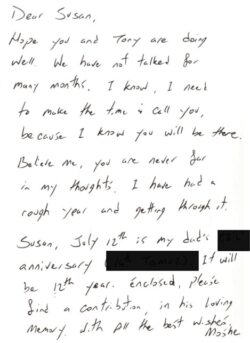 Dear Susan,
Hope you and Tony are doing
well. We have not talked for
many months. I know, I need
to make the time & call you,
because I know you will be there.
Believe me, you are never far
in my thoughts. I have had a
rough year and getting through it.
Susan, July 12th is my dad's
anniversary It will
be 12th year. Enclosed, please
find a contribution in his loving
memory. With all the best wishes
Moshe